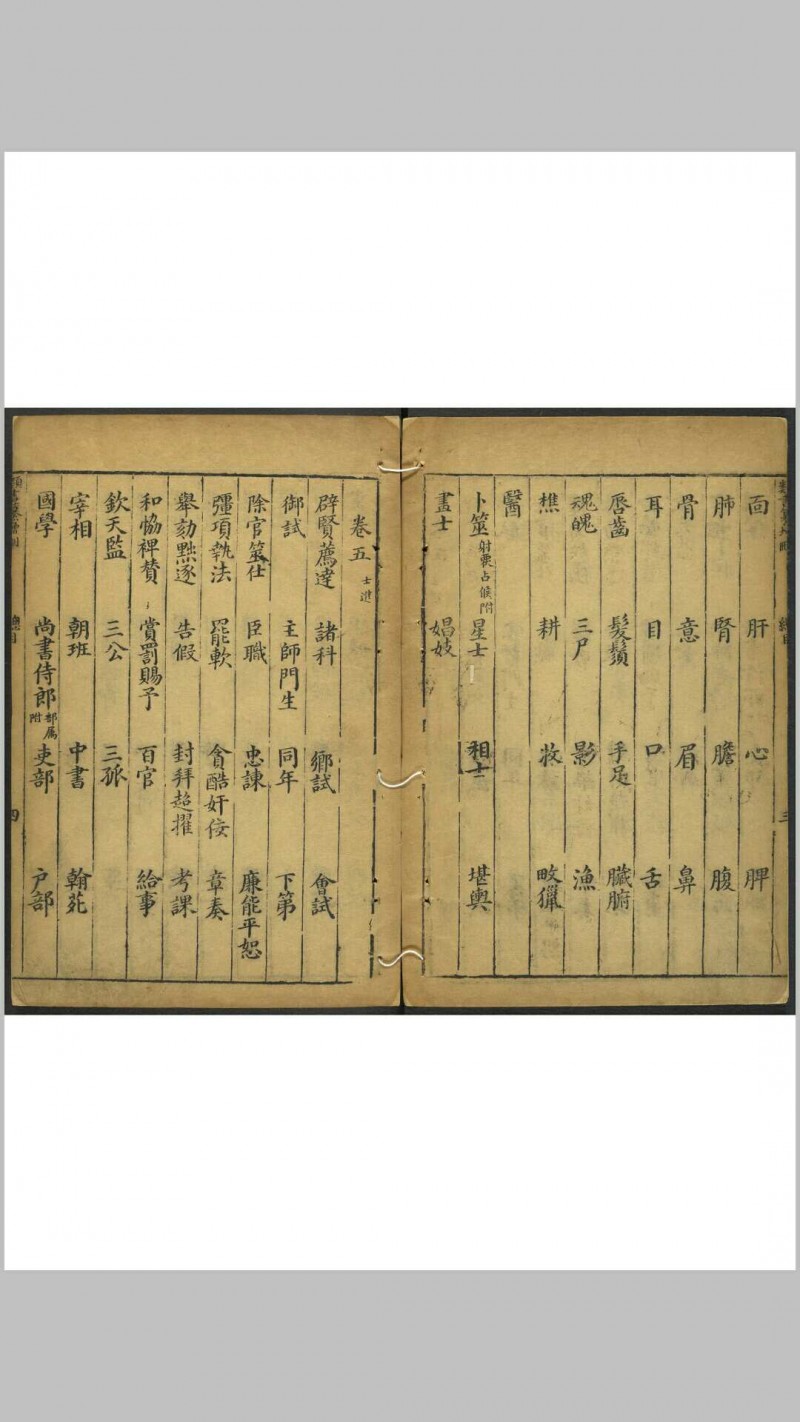 面 肝 心 脾
肺 腎 膽 腹
骨 意 眉 鼻
耳 目 口 舌
唇齒 髮鬚 手足 臟腑
魂魄 三尸 影 漁
樵 耕 牧 畋獵
醫
卜筮射覆占候附 星士 相士 堪輿
畫士 娼妓
卷五 士進
辟賢薦達 諸科 鄉試 會試
御試 主師門生 同年 下第
除官筮仕 臣職 忠諫 廉能平恕
彊項執法 罷軟 貪酷奸佞 章奏
舉劾黜逐 告假 封拜超擢 考課
和恊裨賛 賞罰賜予 百官 給事
欽天監 三公 三孤
宰相 朝班 中書 翰苑
國學 尚書侍郎部属附 吏部 戶部
四